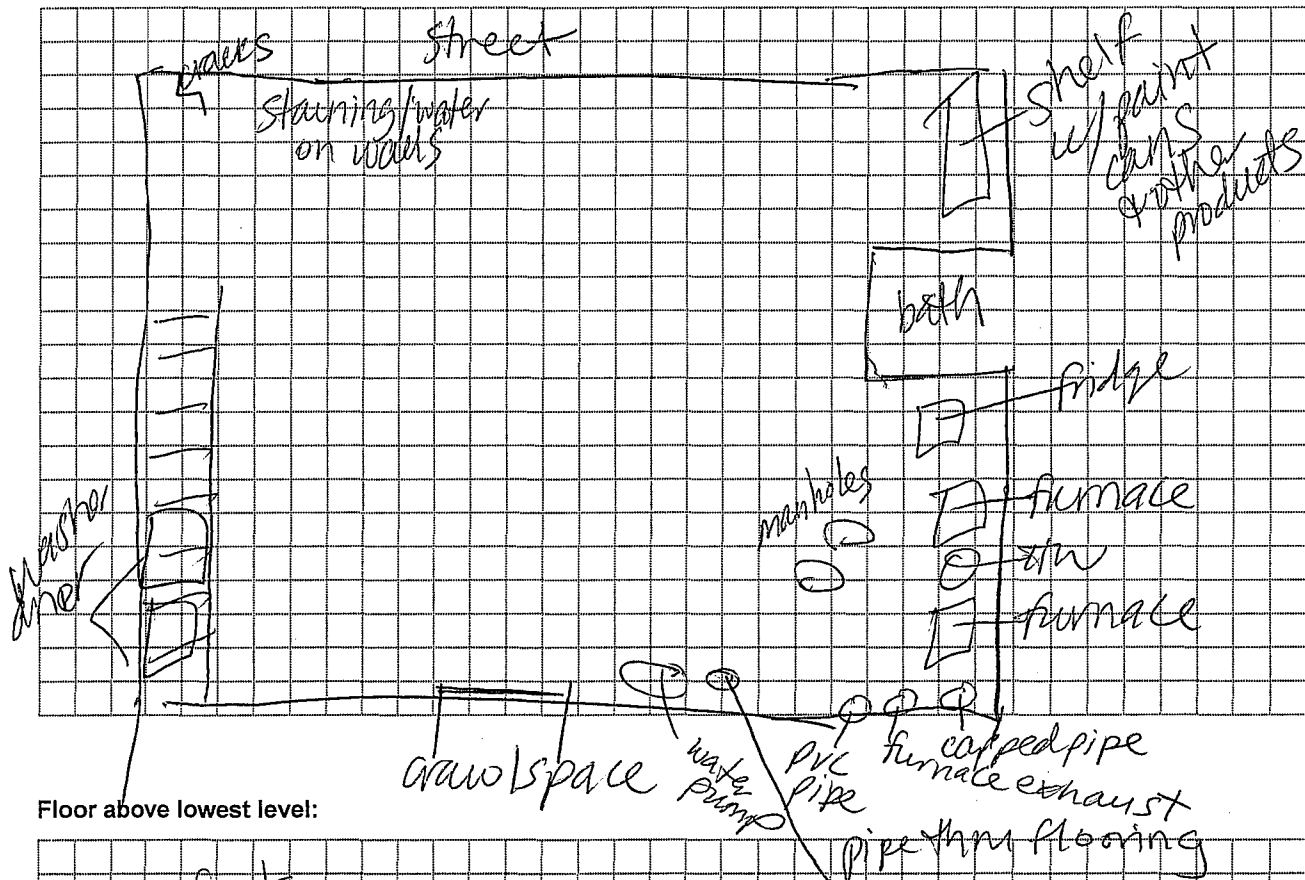 street
cracks
staining/water
on walls
shelf
w/ paint
cans
& other
products
bath
fridge
manholes
furnace
furnace
washer
dryer
crawlspace
water
pump
PVC
pipe
furnace exhaust
capped pipe
pipe thru flooring
Floor above lowest level: